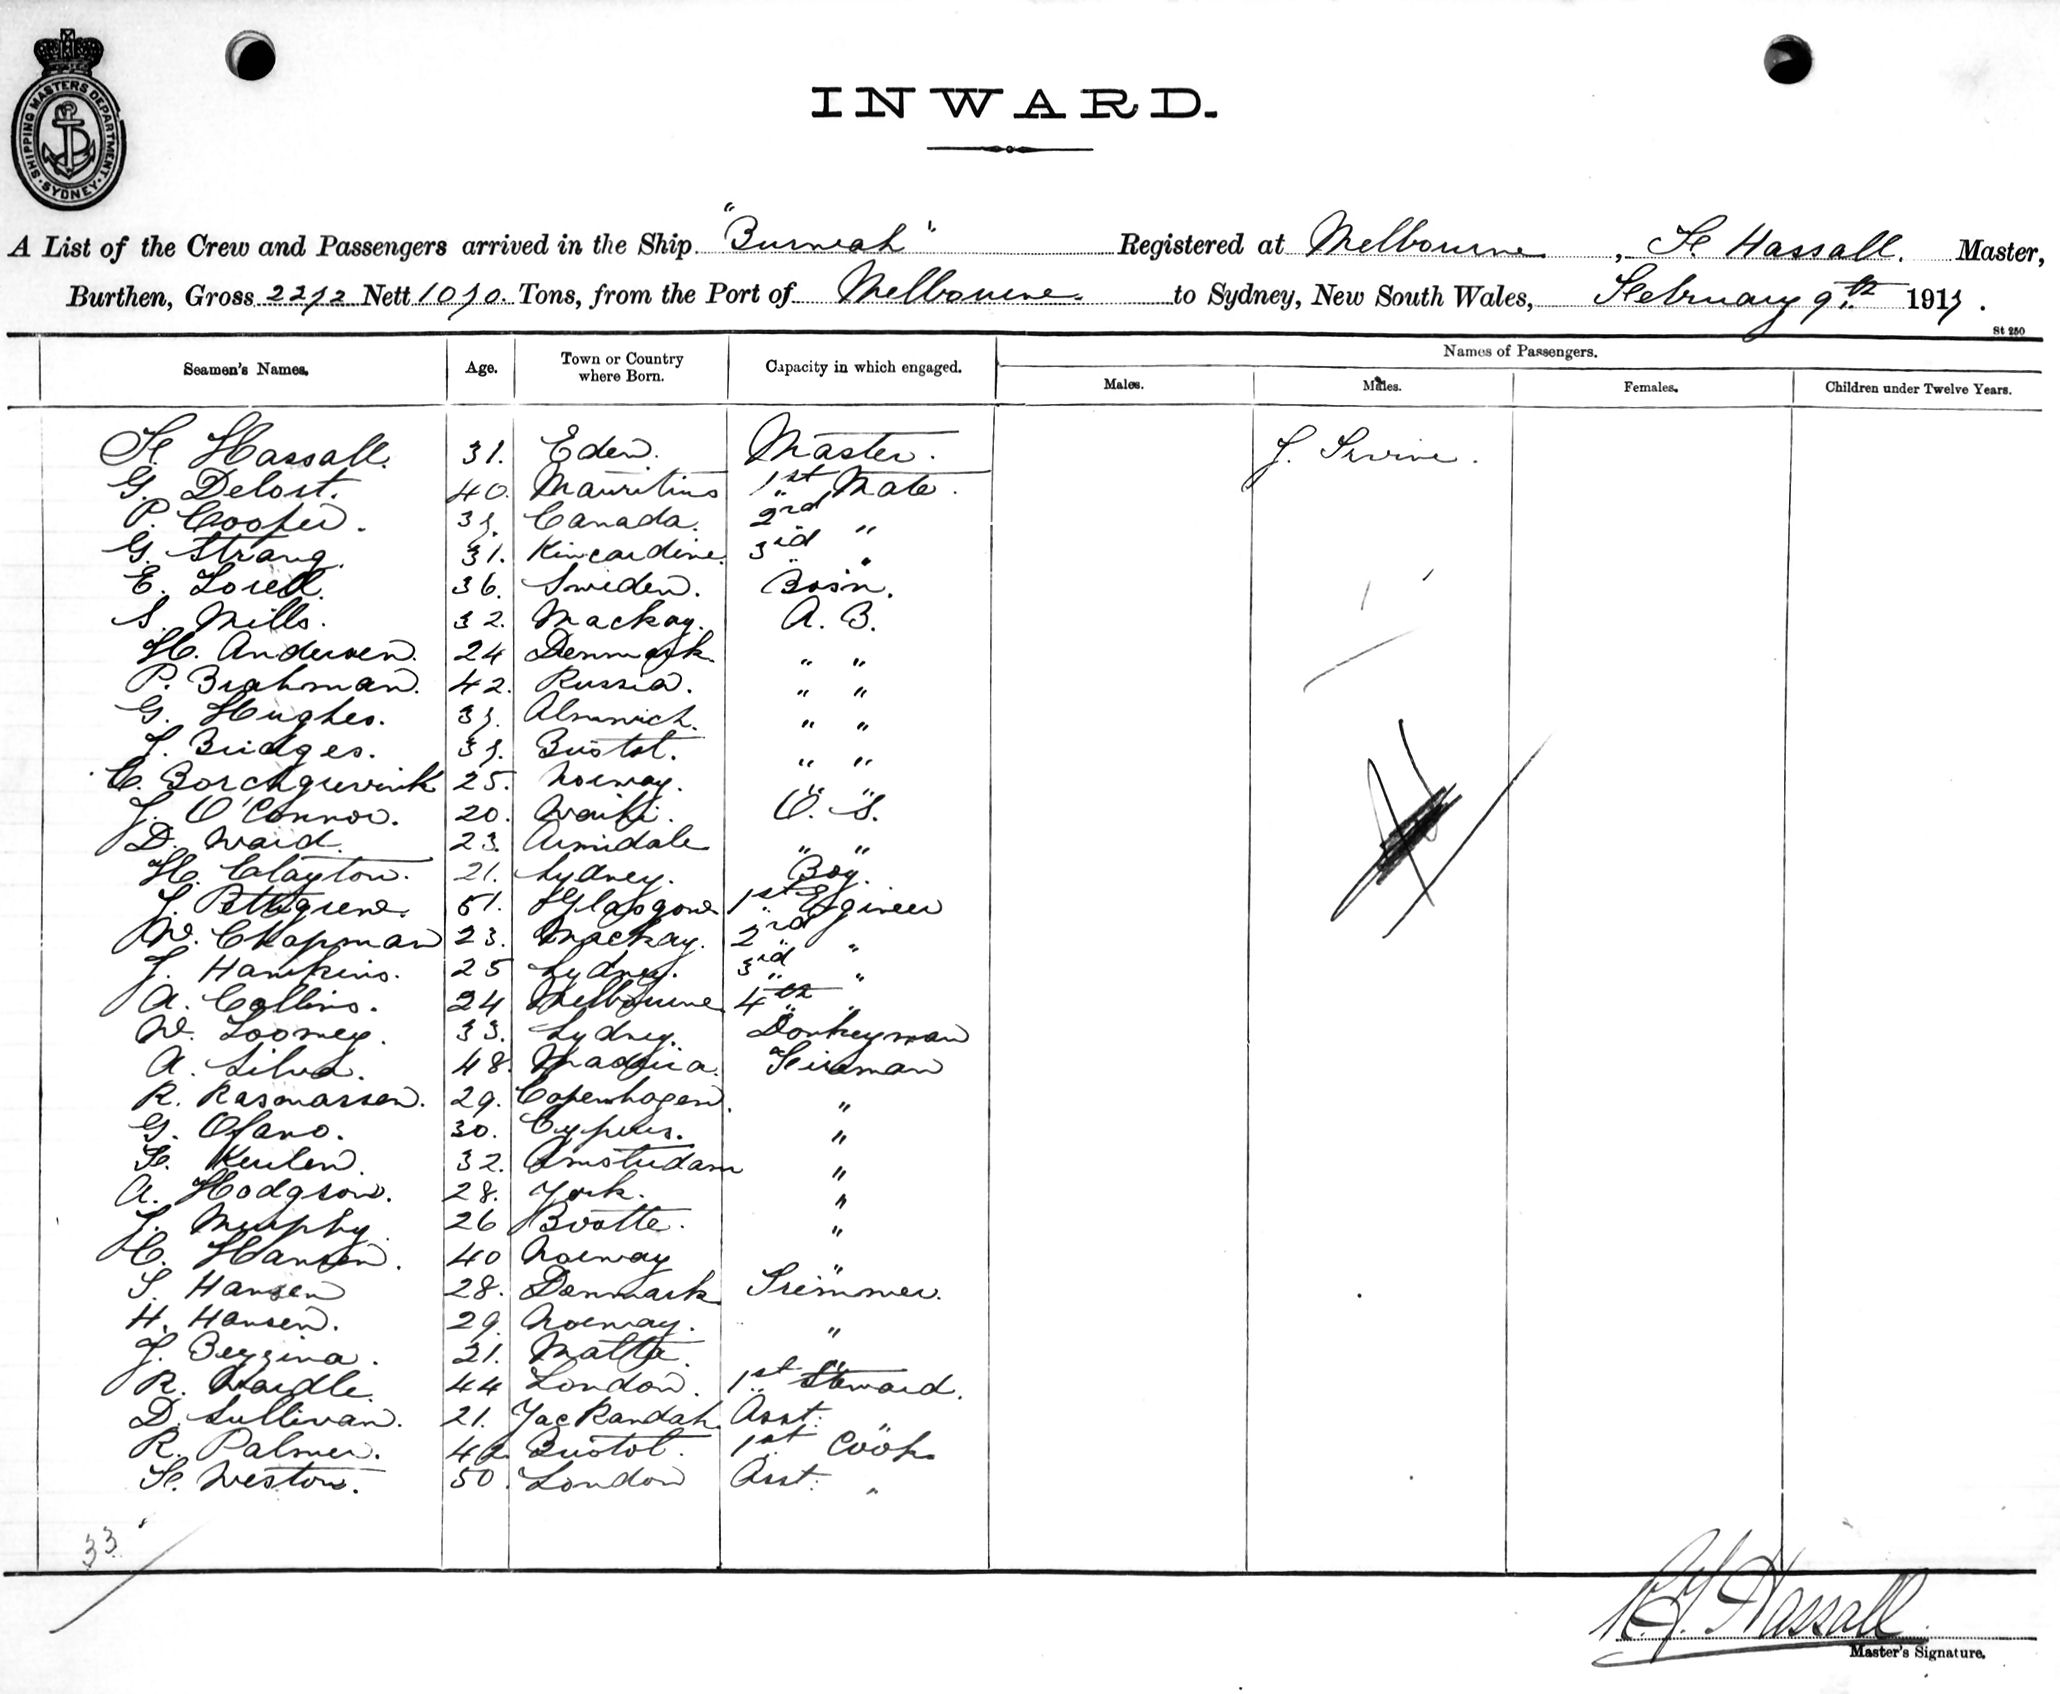 SHIPPING MASTERS DEPARTMENT · SYDNEY ·
INWARD.
A List of the Crew and Passengers arrived in the Ship "Burwah" Registered at Melbourne, F. Hassall. Master,
Burthen, Gross 2272 Nett 1070 Tons, from the Port of Melbourne. to Sydney, New South Wales, February 9th 1917.
St 250
Seamen's Names. Age. Town or Country where Born. Capacity in which engaged. Names of Passengers.
Males. Males. Females. Children under Twelve Years.
F. Hassall. 31. Eden. Master. J. Irvine.
G. Delort. 40. Mauritius 1st Mate.
P. Cooper. 37. Canada. 2nd "
G. Strang. 31. Kincardine. 3rd "
E. Lorell. 36. Sweden. Bos'n.
S. Mills. 32. Mackay. A. B.
H. Andersen. 24 Denmark. " "
P. Brahman. 42. Russia. " "
G. Hughes. 37. Alnwick. " "
J. Bridges. 37. Bristol. " "
C. Borchgrevink 25. Norway. " "
J. O'Connor. 20. Waihi. O. S.
D. Ward. 23. Armidale " "
H. Clayton. 21. Sydney. Boy.
J. Pettigrew. 51. Glasgow 1st Engineer
W. Chapman 23. Mackay. 2nd "
J. Hawkins. 25 Sydney. 3rd "
A. Collins. 24 Melbourne 4th "
W. Toomey. 33. Sydney. Donkeyman
A. Silva. 48. Madeira. Fireman
R. Rasmassen. 29. Copenhagen. "
G. Ofano. 30. Cyprus. "
F. Keulen. 32. Amsterdam "
A. Hodgson. 28. York. "
J. Murphy. 26 Bootle. "
C. Hansen. 40 Norway "
S. Hansen 28. Denmark. Trimmer.
H. Hansen. 29. Norway. "
J. Bezzina. 21. Malta. "
R. Wardle. 44 London. 1st Steward.
D. Sullivan. 21. Yackandah. Asst. "
R. Palmer. 42 Bristol. 1st Cook.
F. Weston. 50. London Asst. "
33
Hassall
Master's Signature.